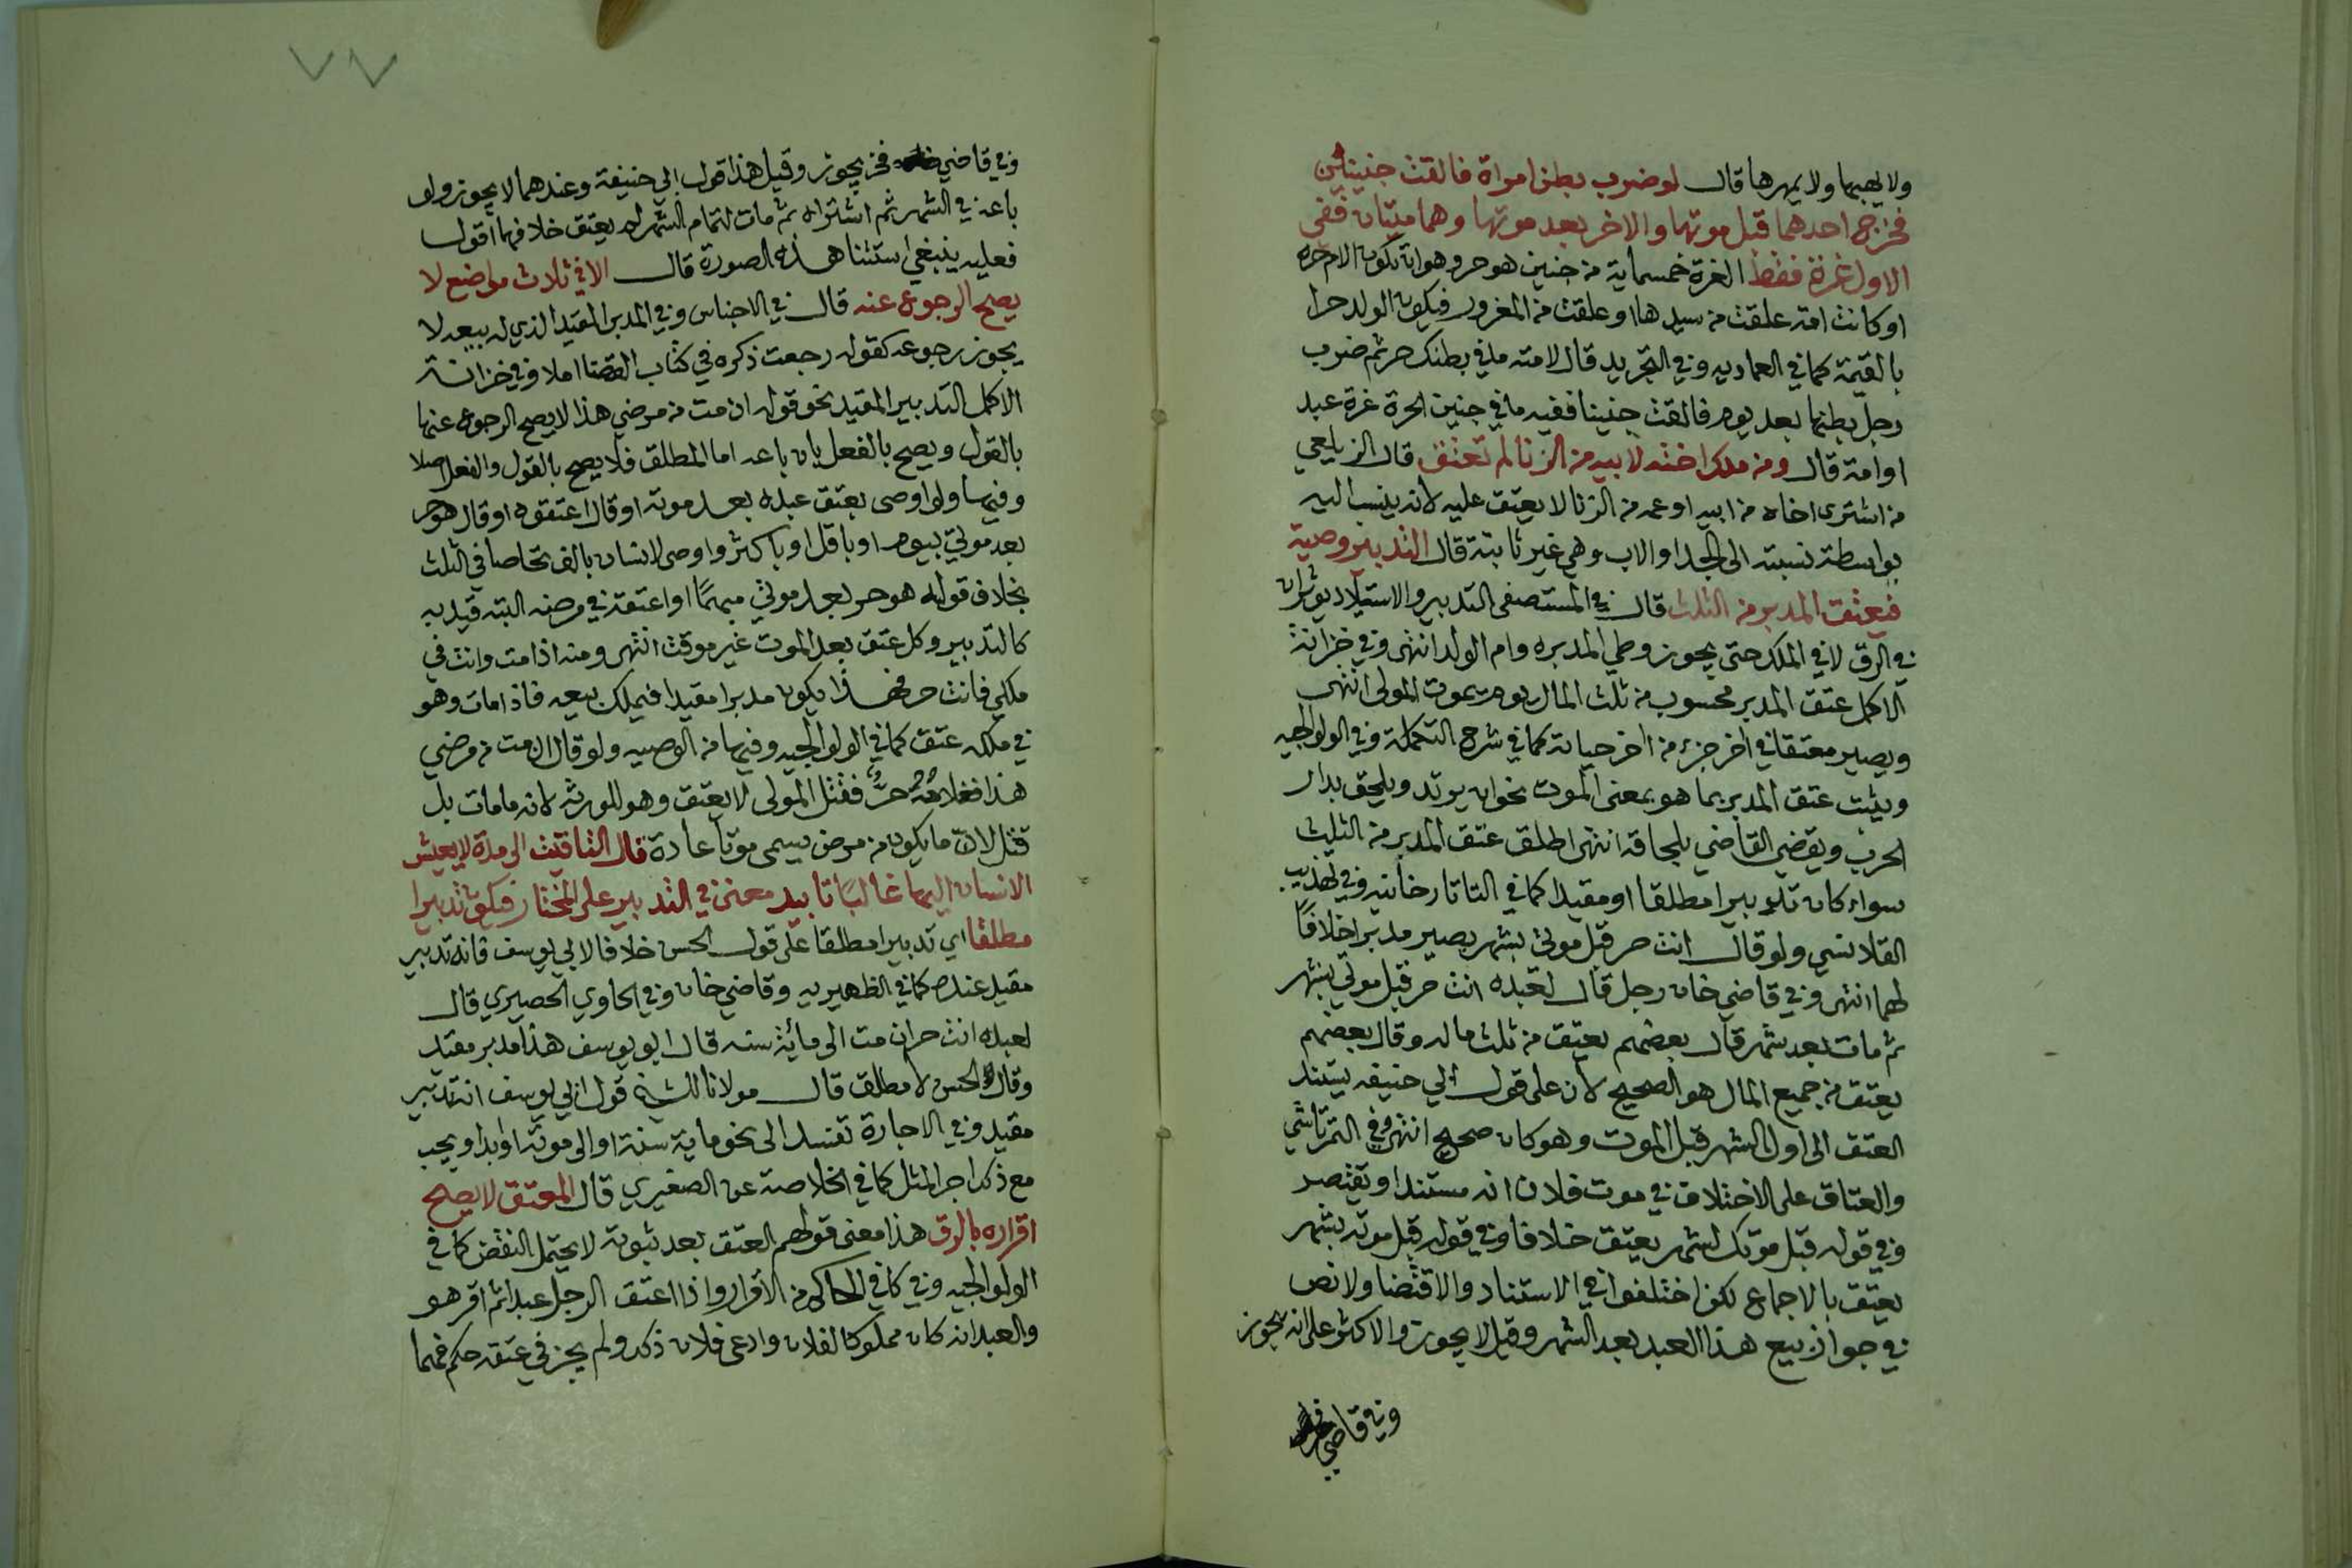 ولا يهبها ولا يمهرها قال لو ضرب بطن امراة فالقت جنينين
فخرج احدهما قبل موتها والاخر بعد موتها وهما ميتان ففي
الاول غرة فقط الغرة خمسماية من جنين هو حر وهو ان تكون الام حرة
او كانت امة علقت من سيدها او علقت من المغرور فيكون الولد حرا
بالقيمة كما في العماديه وفي التجريد قال لامته ما في بطنك حر ثم ضرب
رجل بطنها بعد يوم فالقت جنينا ففيه ما في جنين الحرة غرة عبد
او امة قال ومن ملك اخته لابيه من الزنا لم تعتق قال الزيلعي
من اشترى اخاه من ابيه او عمه من الزنا لا يعتق عليه لانه ينسب اليه
بواسطة نسبته الى الجد او الاب وهي غير ثابتة قال التدبير وصية
فيعتق المدبر من الثلث قال في المستصفى التدبير والاستيلاد يوثران
في الرق لا في الملك حتى يجوز وطي المدبره وام الولد انتهى وفي خزانة
الاكمل عتق المدبر محسوب من ثلث المال يوم يموت المولى انتهى
ويصير معتقا في اخر جزء من اخر حياته كما في شرح التكملة وفي الولوالجيه
ويثبت عتق المدبر بما هو بمعنى الموت نحو ان يرتد ويلحق بدار
الحرب ويقضي القاضي بلحاقه انتهى اطلق عتق المدبر من الثلث
سواء كان تدبيرا مطلقا او مقيدا كما في التاتارخانيه وفي تهذيب
القلانسي ولو قال انت حر قبل موتي بشهر يصير مدبرا خلافا
لهما انتهى وفي قاضي خان رجل قال لعبده انت حر قبل موتي بشهر
ثم مات بعد شهر قال بعضهم يعتق من ثلث ماله وقال بعضهم
يعتق من جميع المال هو الصحيح لان على قول ابي حنيفه يستند
العتق الى اول الشهر قبل الموت وهو كان صحيح انتهى وفي التمرتاشي
والعتاق على الاختلاف في موت فلان انه مستندا او يقتصر
وفي قوله قبل موتك لشهر يعتق خلافا وفي قوله قبل موته بشهر
يعتق بالاجماع لكن اختلفوا في الاستناد والاقتضا ولا نص
في جواز بيع هذا العبد بعد الشهر وقيل لا يجوز والاكثر على انه يجوز
وفي قاضي
٧٧
وفي قاضي فخر يجوز وقيل هذا قول ابي حنيفة وعندهما لا يجوز ولو
باعه في الشهر ثم اشتراه ثم مات لتمام الشهر لم يعتق خلافهما اقول
فعليه ينبغي استثنا هذه الصورة قال الا في ثلاث مواضع لا
يصح الرجوع عنه قال في الاجناس وفي المدبر المقيد الذي له بيعه لا
يجوز رجوعه كقوله رجعت ذكره في كتاب القضا املا وفي خزانة
الاكمل التدبير المقيد نحو قوله ان مت من مرضي هذا لا يصح الرجوع عنها
بالقول ويصح بالفعل بان باعه اما المطلق فلا يصح بالقول والفعل اصلا
وفيها ولو اوصى بعتق عبده بعد موته او قال اعتقوه او قال هو حر
بعد موتي بيوم او باقل او باكثر واوصى لانسان بالف تحاصا في الثلث
بخلاف قوله هو حر بعد موتي مبهما او اعتقه في مرضه البته قيد به
كالتدبير وكل عتق بعد الموت غير موقت انتهى ومنه اذا مت وانت في
ملكي فانت حر فهذا يكون مدبرا مقيدا فيملك بيعه فاذا مات وهو
في ملكه عتق كما في الولوالجيه وفيها من الوصيه ولو قال ان مت من مرضي
هذا فغلامي حر فقتل المولى لا يعتق وهو للورثة لانه ما مات بل
قتل لان ما يكون من مرض يسمى موتا عادة قال التاقيت الى مدة لا يعيش
الانسان اليها غالبا تابيد معنى في التدبير على المختار فيكون تدبيرا
مطلقا اي تدبيرا مطلقا على قول الحسن خلافا لابي يوسف فانه تدبير
مقيد عنده كما في الظهيريه وقاضي خان وفي الحاوي الحصيري قال
لعبده انت حر ان مت الى مائة سنه قال ابو يوسف هذا مدبر مقيد
وقال الحسن لا مطلق قال مولانا قول ابي يوسف انه تدبير
مقيد وفي الاجارة تفسد الى نحو ماية سنة او الى موته او ابدا ويجب
مع ذكر اجر المثل كما في الخلاصة عن الصغيري قال المعتق لا يصح
اقراره بالرق هذا معنى قولهم العتق بعد ثبوته لا يحتمل النقض كما في
الولوالجيه وفي كافي الحاكم من الاقرار واذا اعتق الرجل عبدا ثم اقر هو
والعبد انه كان مملوكا لفلان وادعى فلان ذلك ولم يجز في عتقه حكم فهما